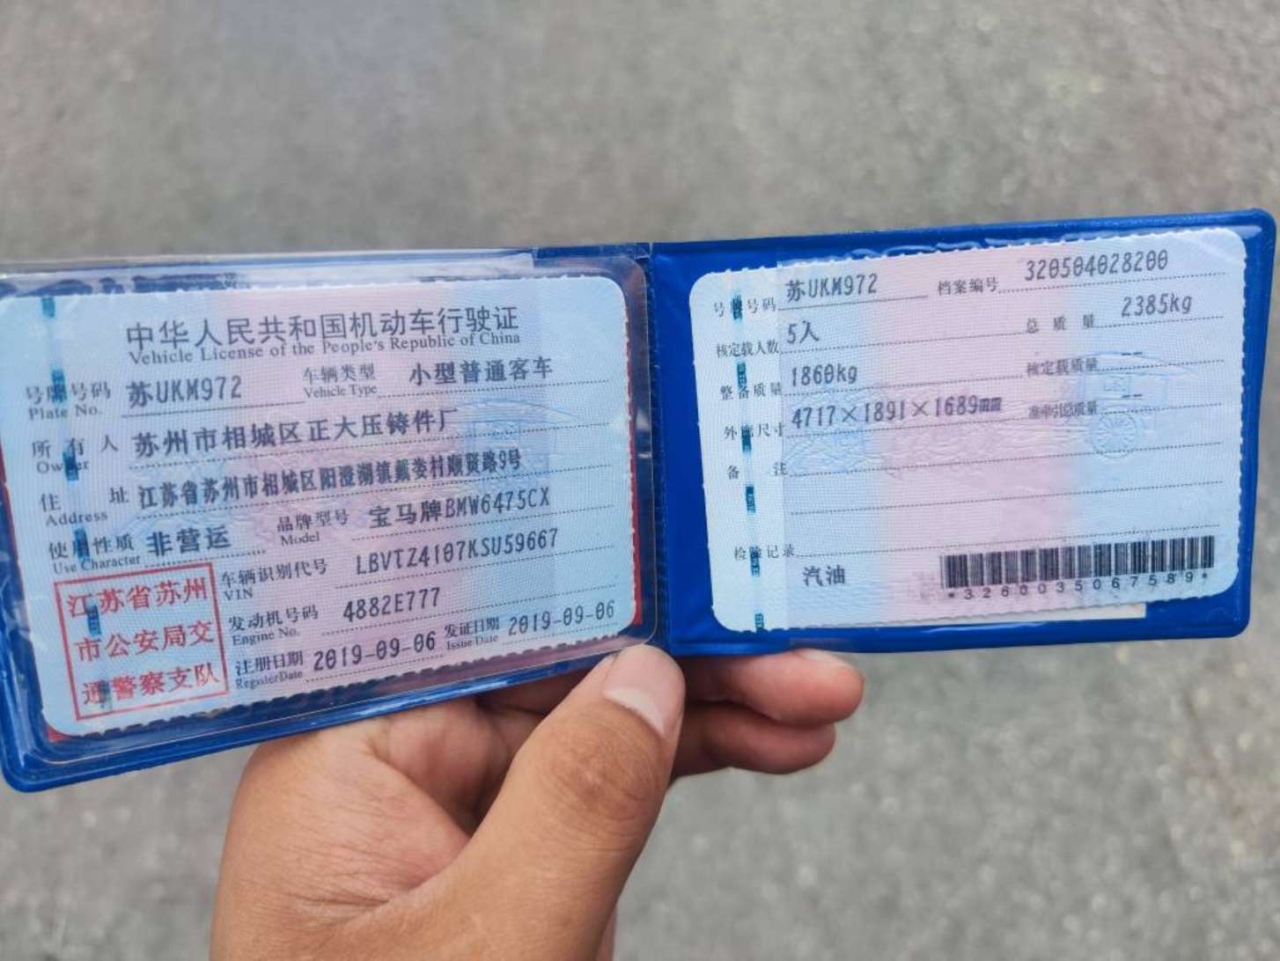 中华人民共和国机动车行驶证
Vehicle License of the People's Republic of China
号牌号码 苏UKM972 车辆类型 小型普通客车
Plate No. Vehicle Type
所有人 苏州市相城区正大压铸件厂
Owner
住址 江苏省苏州市相城区阳澄湖镇戴娄村顺贤路9号
Address
使用性质 非营运 品牌型号 宝马牌BMW6475CX
Use Character Model
车辆识别代号 LBVTZ4107KSU59667
VIN
发动机号码 4882E777
Engine No.
注册日期 2019-09-06 发证日期 2019-09-06
Register Date Issue Date
江苏省苏州
市公安局交
通警察支队
号牌号码 苏UKM972 档案编号 320504028200
核定载人数 5人 总质量 2385kg
整备质量 1860kg 核定载质量 --
外廓尺寸 4717×1891×1689mm 准牵引总质量 --
备注
检验记录
汽油
*3260035067589*